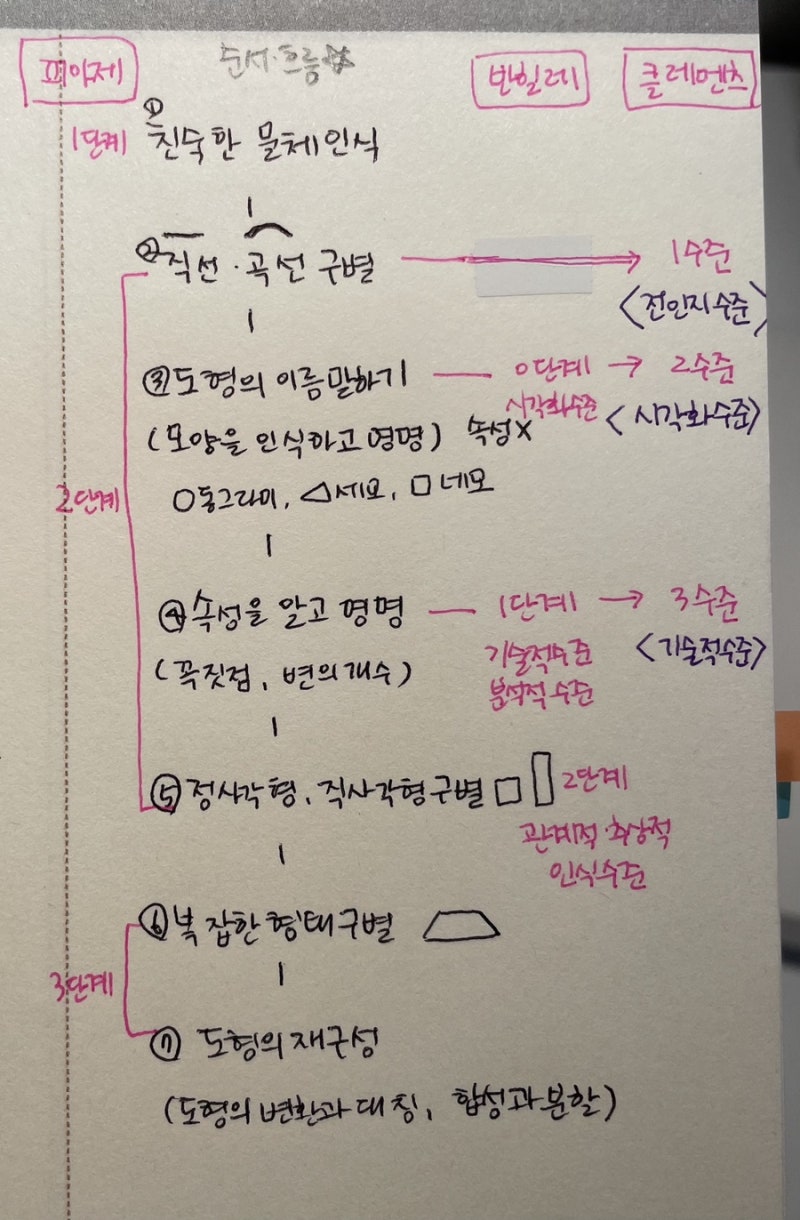 피아제 순서·흐름 반힐레 클레멘츠
1단계 ① 친숙한 물체 인식
② 직선·곡선 구별 → 1수준
<전인지수준>
③ 도형의 이름말하기 — 0단계 → 2수준
시각화수준 <시각화수준>
(모양을 인식하고 명명) 속성X
2단계 ○동그라미, △세모, □네모
④ 속성을 알고 명명 — 1단계 → 3수준
기술적수준 <기술적수준>
(꼭짓점, 변의개수) 분석적 수준
⑤ 정사각형, 직사각형 구별 2단계
관계적·추상적
인식수준
⑥ 복잡한 형태구별
3단계
⑦ 도형의 재구성
(도형의 변환과 대칭, 합성과 분할)